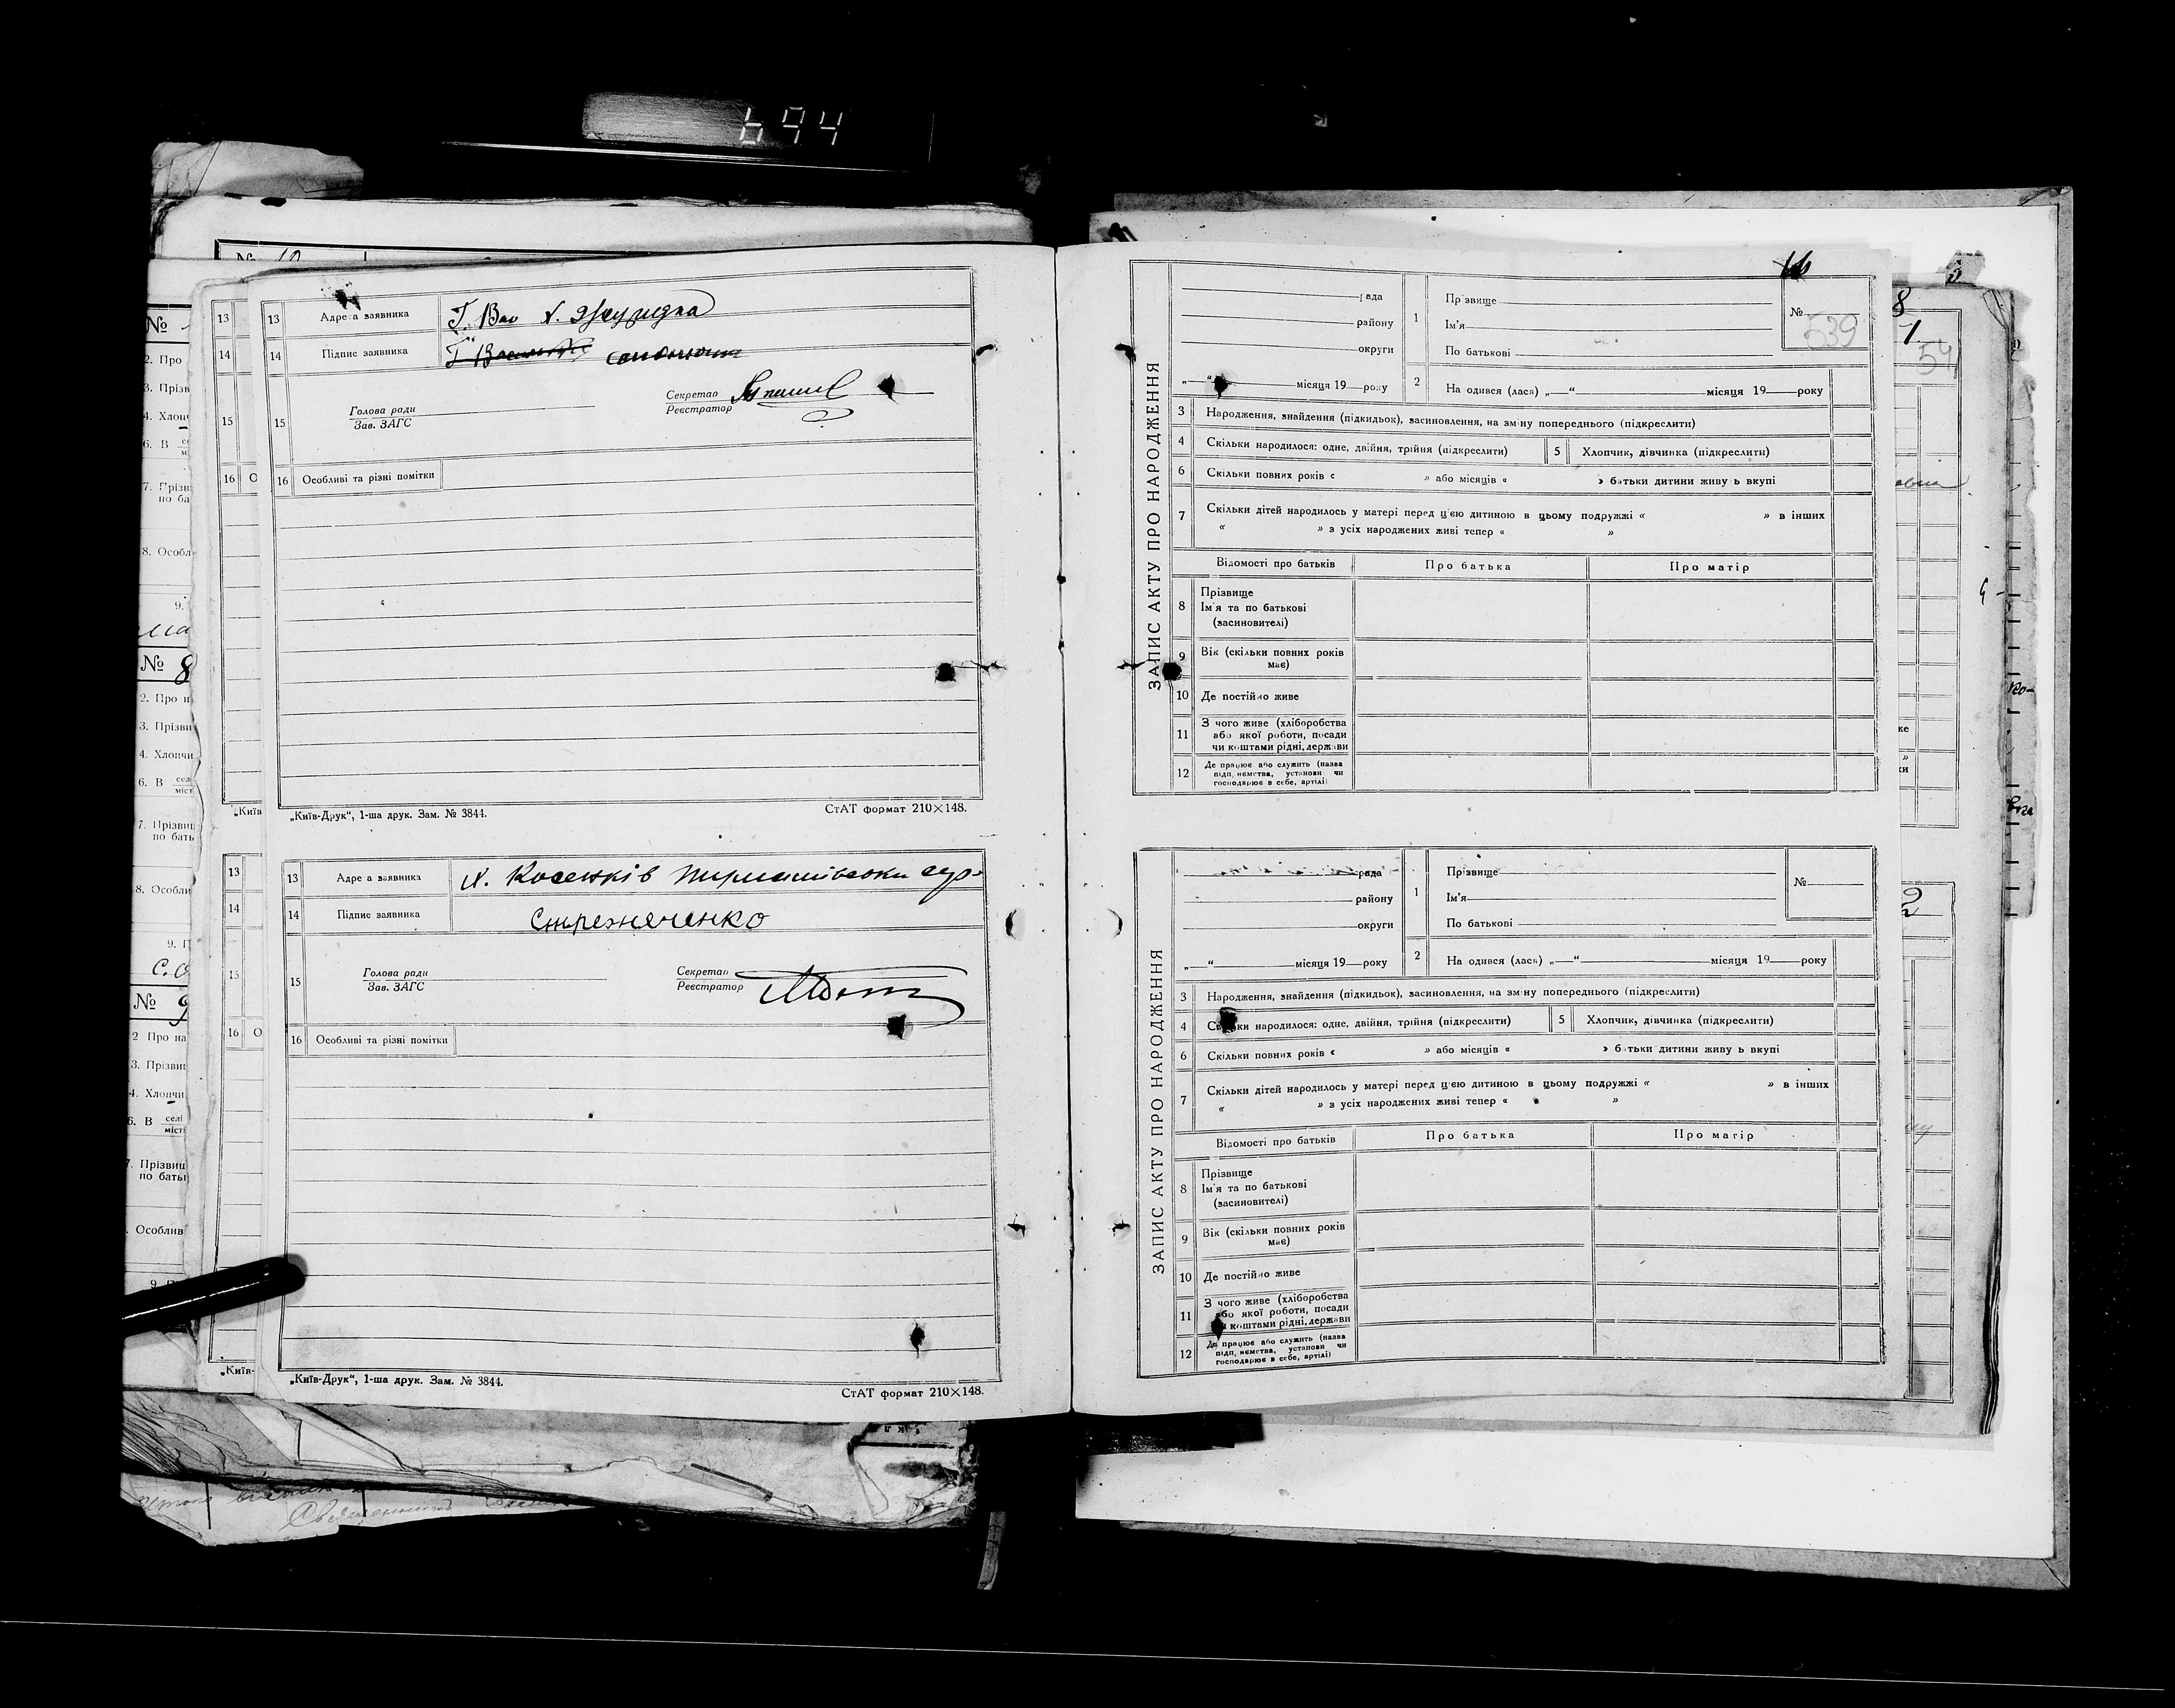 694
13 Адреса заявника Г. Вас Х. Журидка
14 Підпис заявника
15 Голова ради
Зав. ЗАГС
Секретар
Реєстратор
16 Особливі та різні помітки
„Київ-Друк“, 1-ша друк. Зам. № 3844. СтАТ формат 210×148.
13 Адреса заявника Х. Косенків
14 Підпис заявника Стрежнеченко
15 Голова ради
Зав. ЗАГС
Секретар
Реєстратор
16 Особливі та різні помітки
„Київ-Друк“, 1-ша друк. Зам. № 3844. СтАТ формат 210×148.
ЗАПИС АКТУ ПРО НАРОДЖЕННЯ
рада
району
округи
„ “ місяця 19 року
1 Прізвище
Ім'я
По батькові
№ 539
2 На одився (лася) „ “ місяця 19 року
3 Народження, знайдення (підкидьок), засиновлення, на зміну попереднього (підкреслити)
4 Скільки народилося: одне, двійня, трійня (підкреслити) 5 Хлопчик, дівчинка (підкреслити)
6 Скільки повних років « » або місяців « » батьки дитини живу ь вкупі
7 Скільки дітей народилось у матері перед цією дитиною в цьому подружжі « » в інших
« » з усіх народжених живі тепер « »
Відомості про батьків Про батька Про матір
8 Прізвище
Ім'я та по батькові
(засиновителі)
9 Вік (скільки повних років
має)
10 Де постійно живе
11 З чого живе (хліборобства
або якої роботи, посади
чи коштами рідні, держави
12 Де працює або служить (назва
підприємства, установи чи
господарює в себе, артілі)
ЗАПИС АКТУ ПРО НАРОДЖЕННЯ
рада
району
округи
„ “ місяця 19 року
1 Прізвище
Ім'я
По батькові
№
2 На одився (лася) „ “ місяця 19 року
3 Народження, знайдення (підкидьок), засиновлення, на зміну попереднього (підкреслити)
4 Скільки народилося: одне, двійня, трійня (підкреслити) 5 Хлопчик, дівчинка (підкреслити)
6 Скільки повних років « » або місяців « » батьки дитини живу ь вкупі
7 Скільки дітей народилось у матері перед цією дитиною в цьому подружжі « » в інших
« » з усіх народжених живі тепер « »
Відомості про батьків Про батька Про матір
8 Прізвище
Ім'я та по батькові
(засиновителі)
9 Вік (скільки повних років
має)
10 Де постійно живе
11 З чого живе (хліборобства
або якої роботи, посади
чи коштами рідні, держави
12 Де працює або служить (назва
підприємства, установи чи
господарює в себе, артілі)